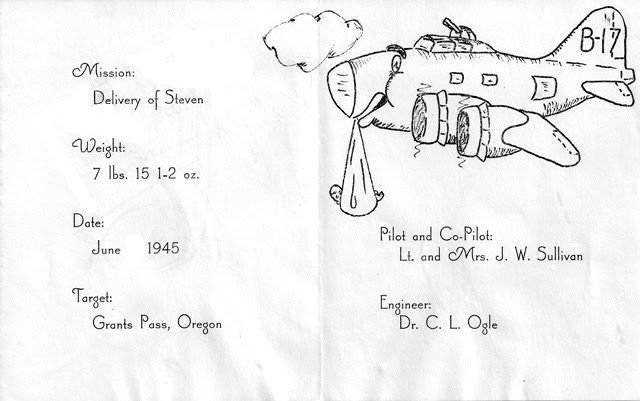 Mission:
Delivery of Steven
Weight:
7 lbs. 15 1-2 oz.
Date:
June 1945
Target:
Grants Pass, Oregon
B-17
Pilot and Co-Pilot:
Lt. and Mrs. J. W. Sullivan
Engineer:
Dr. C. L. Ogle